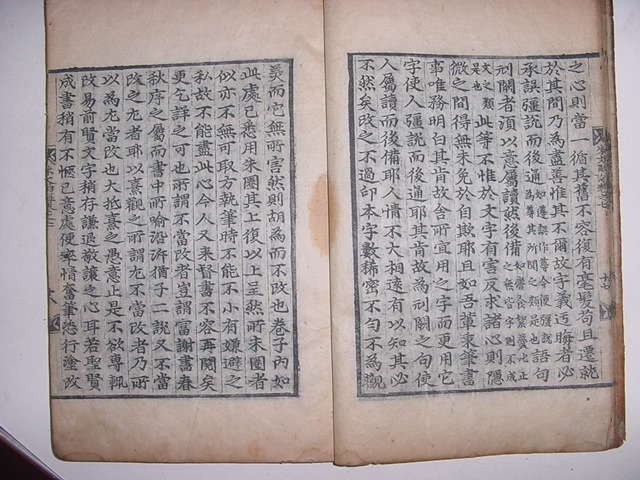 之心則當一循其舊不容復有毫髮苟且遷就
於其間乃為盡善惟其不爾故字義迃晦者必
承誤彊說而後通語句
刓闕者須以意屬讀然後備
此等不惟於文字有害反求諸心則隱
微之間得無未免於自欺耶且如吾輩秉筆書
事唯務明白其肯故舍所宜用之字而更用它
字使人彊說而後通耶其肯故為刓闕之句使
人屬讀而後備耶人情不大相遠有以知其必
不然矣改之不過印本字數稀密不勻不為觀
美而它無所害然則胡為而不改也卷子內如
此處已悉用朱圈其上復以上呈然所朱圈者
似亦不無可取方執筆時不能不小有嫌避之
私故不能盡此心今人又來督書不容再閱矣
更乞詳之可也所謂不當改者豈謂富謝書春
秋序之屬而書中所喻沿泝猶子二說又不當
改之尤者耶以熹觀之所謂尤不當改者乃所
以為尤當改也大抵熹之愚意止是不欲專輒
改易前賢文字稍存謙退敬讓之心耳若聖賢
成書稍有不愜己意處便率情奮筆恣行塗改